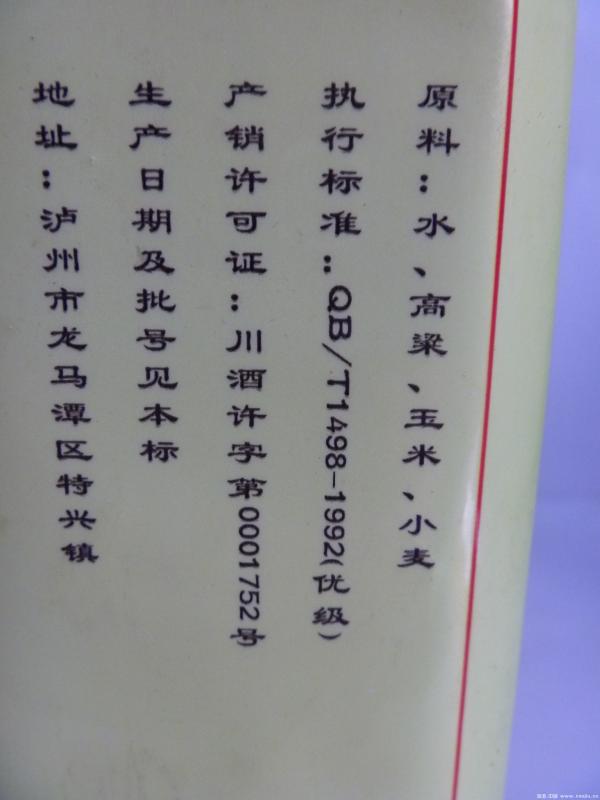 原料：水、高粱、玉米、小麦
执行标准：QB/T1498-1992(优级)
产销许可证：川酒许字第0001752号
生产日期及批号见本标
地址：泸州市龙马潭区特兴镇